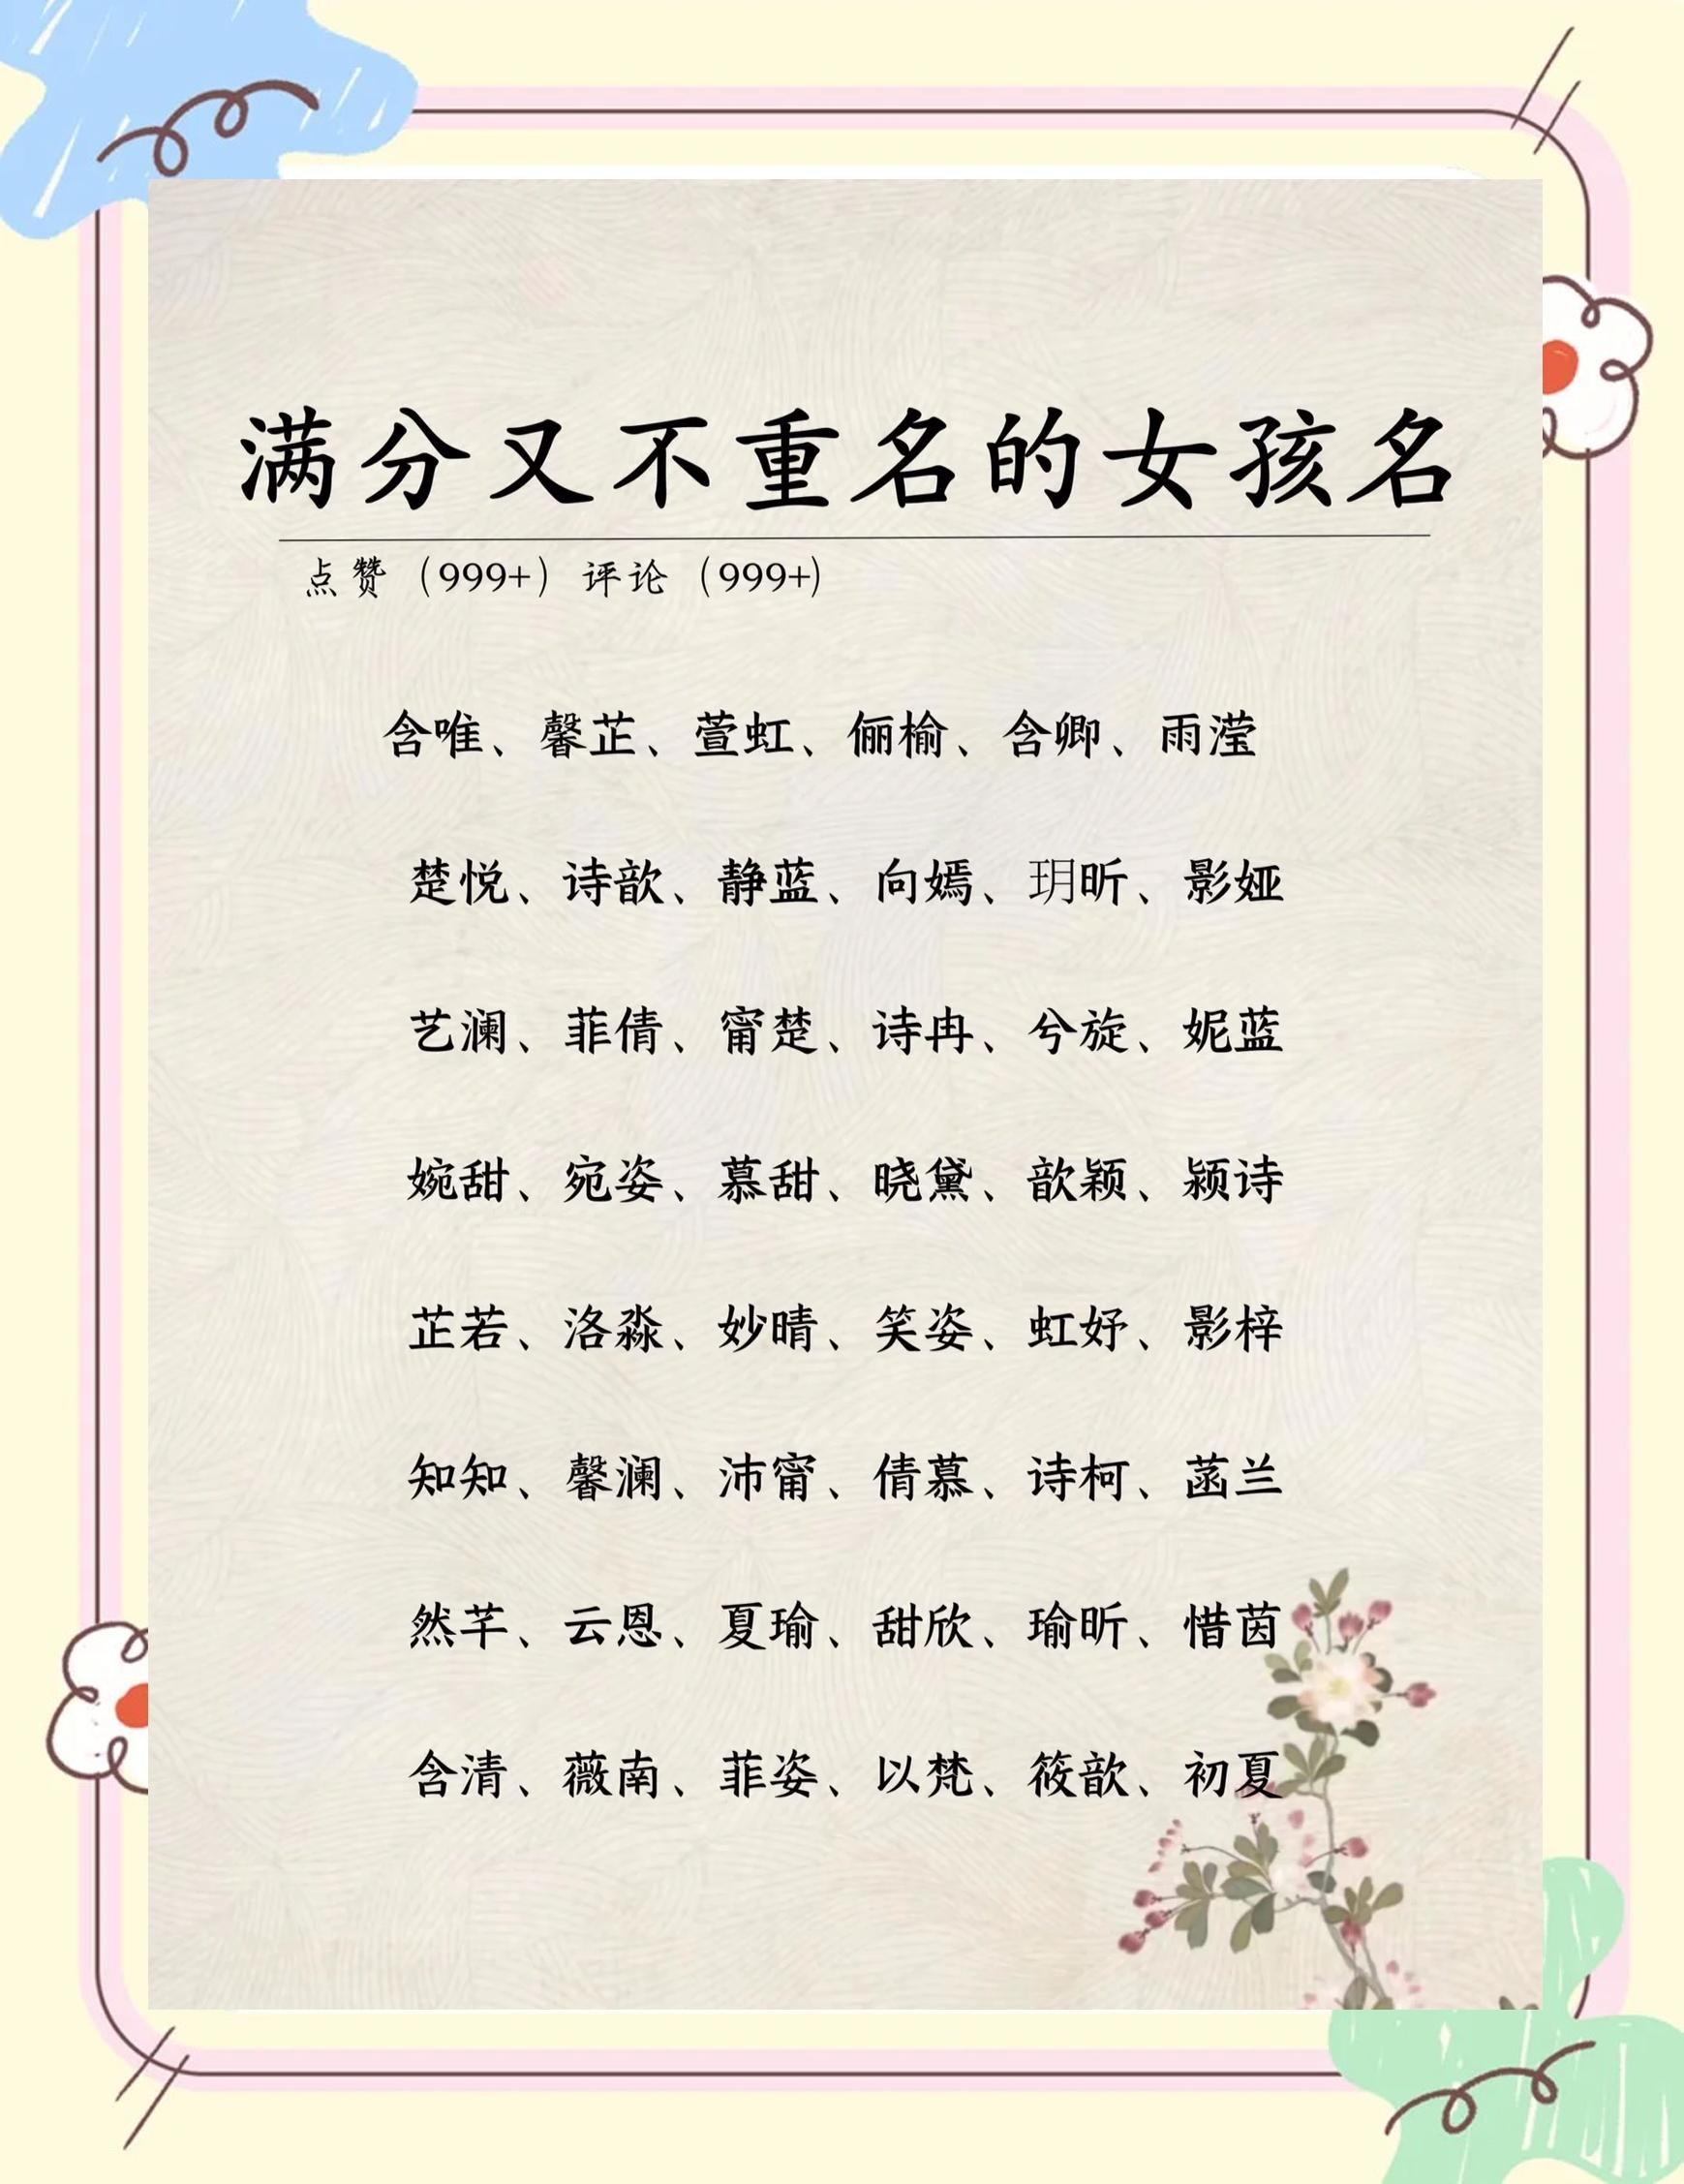 满分又不重名的女孩名
点赞（999+）评论（999+）
含唯、馨芷、萱虹、俪榆、含卿、雨滢
楚悦、诗歆、静蓝、向嫣、玥昕、影娅
艺澜、菲倩、甯楚、诗冉、兮旋、妮蓝
婉甜、宛姿、慕甜、晓黛、歆颖、颍诗
芷若、洛淼、妙晴、笑姿、虹妤、影梓
知知、馨澜、沛甯、倩慕、诗柯、菡兰
然芊、云恩、夏瑜、甜欣、瑜昕、惜茵
含清、薇南、菲姿、以梵、筱歆、初夏